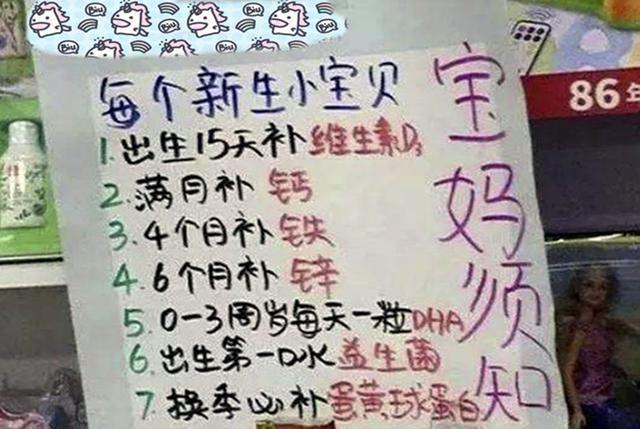 Biu Biu Biu
Biu Biu
每个新生小宝贝
1.出生15天补维生素D3
2.满月补 钙
3.4个月补 铁
4.6个月补 锌
5.0-3周岁每天一粒DHA
6.出生第一口水益生菌
7.换季必补蛋黄球蛋白
宝妈须知
86年